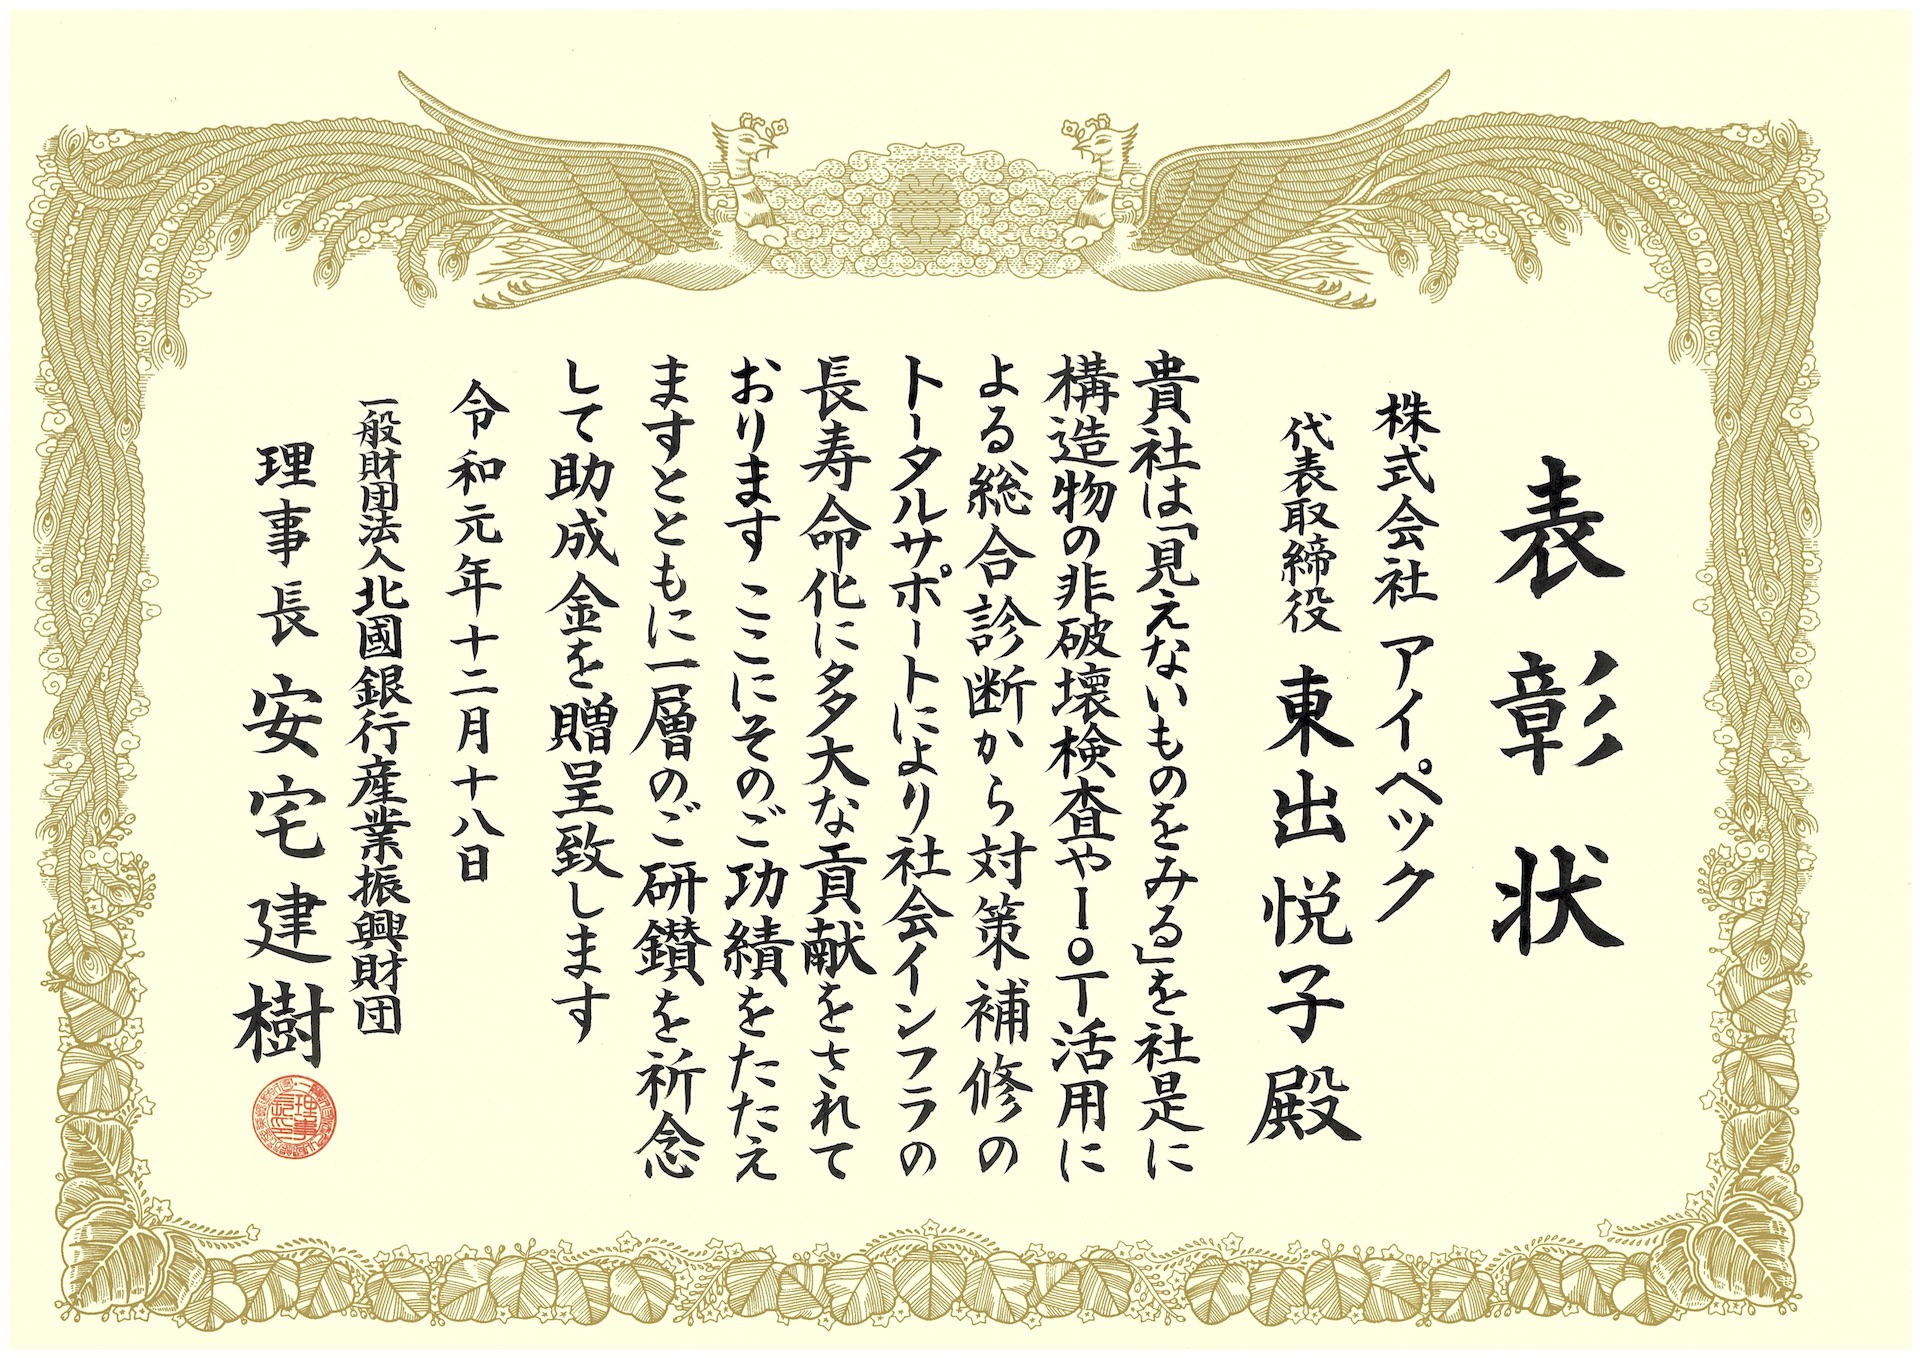 表彰状
株式会社 アイペック
代表取締役 東出悦子殿
貴社は「見えないものをみる」を社是に
構造物の非破壊検査やIoT活用に
よる総合診断から対策補修の
トータルサポートにより社会インフラの
長寿命化に多大な貢献をされて
おります ここにそのご功績をたたえ
ますとともに一層のご研鑚を祈念
して助成金を贈呈致します
令和元年十二月十八日
一般財団法人北國銀行産業振興財団
理事長 安宅建樹